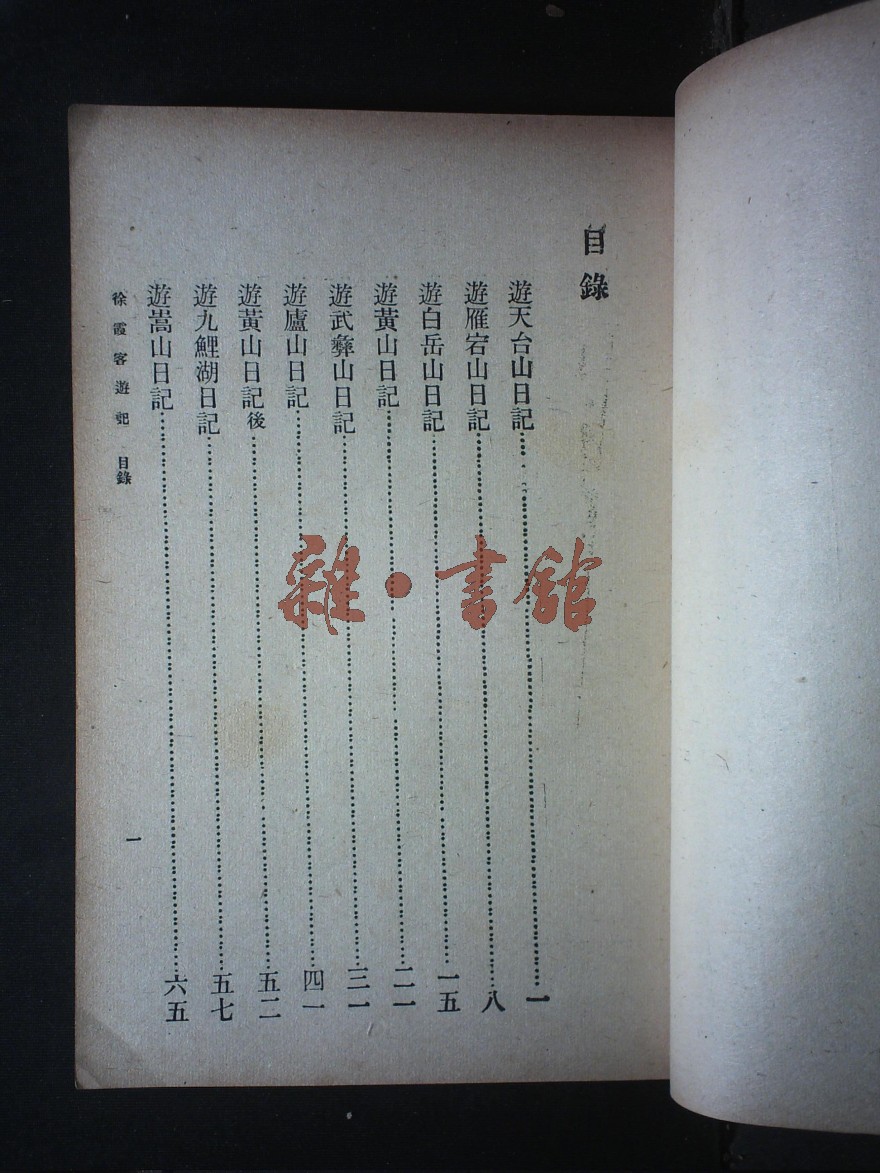 目錄
遊天台山日記 一
遊雁宕山日記 八
遊白岳山日記 一五
遊黃山日記 二一
遊武彝山日記 三一
遊廬山日記 四一
遊黃山日記後 五二
遊九鯉湖日記 五七
遊嵩山日記 六五
徐霞客遊記 目錄
一
雜·書館